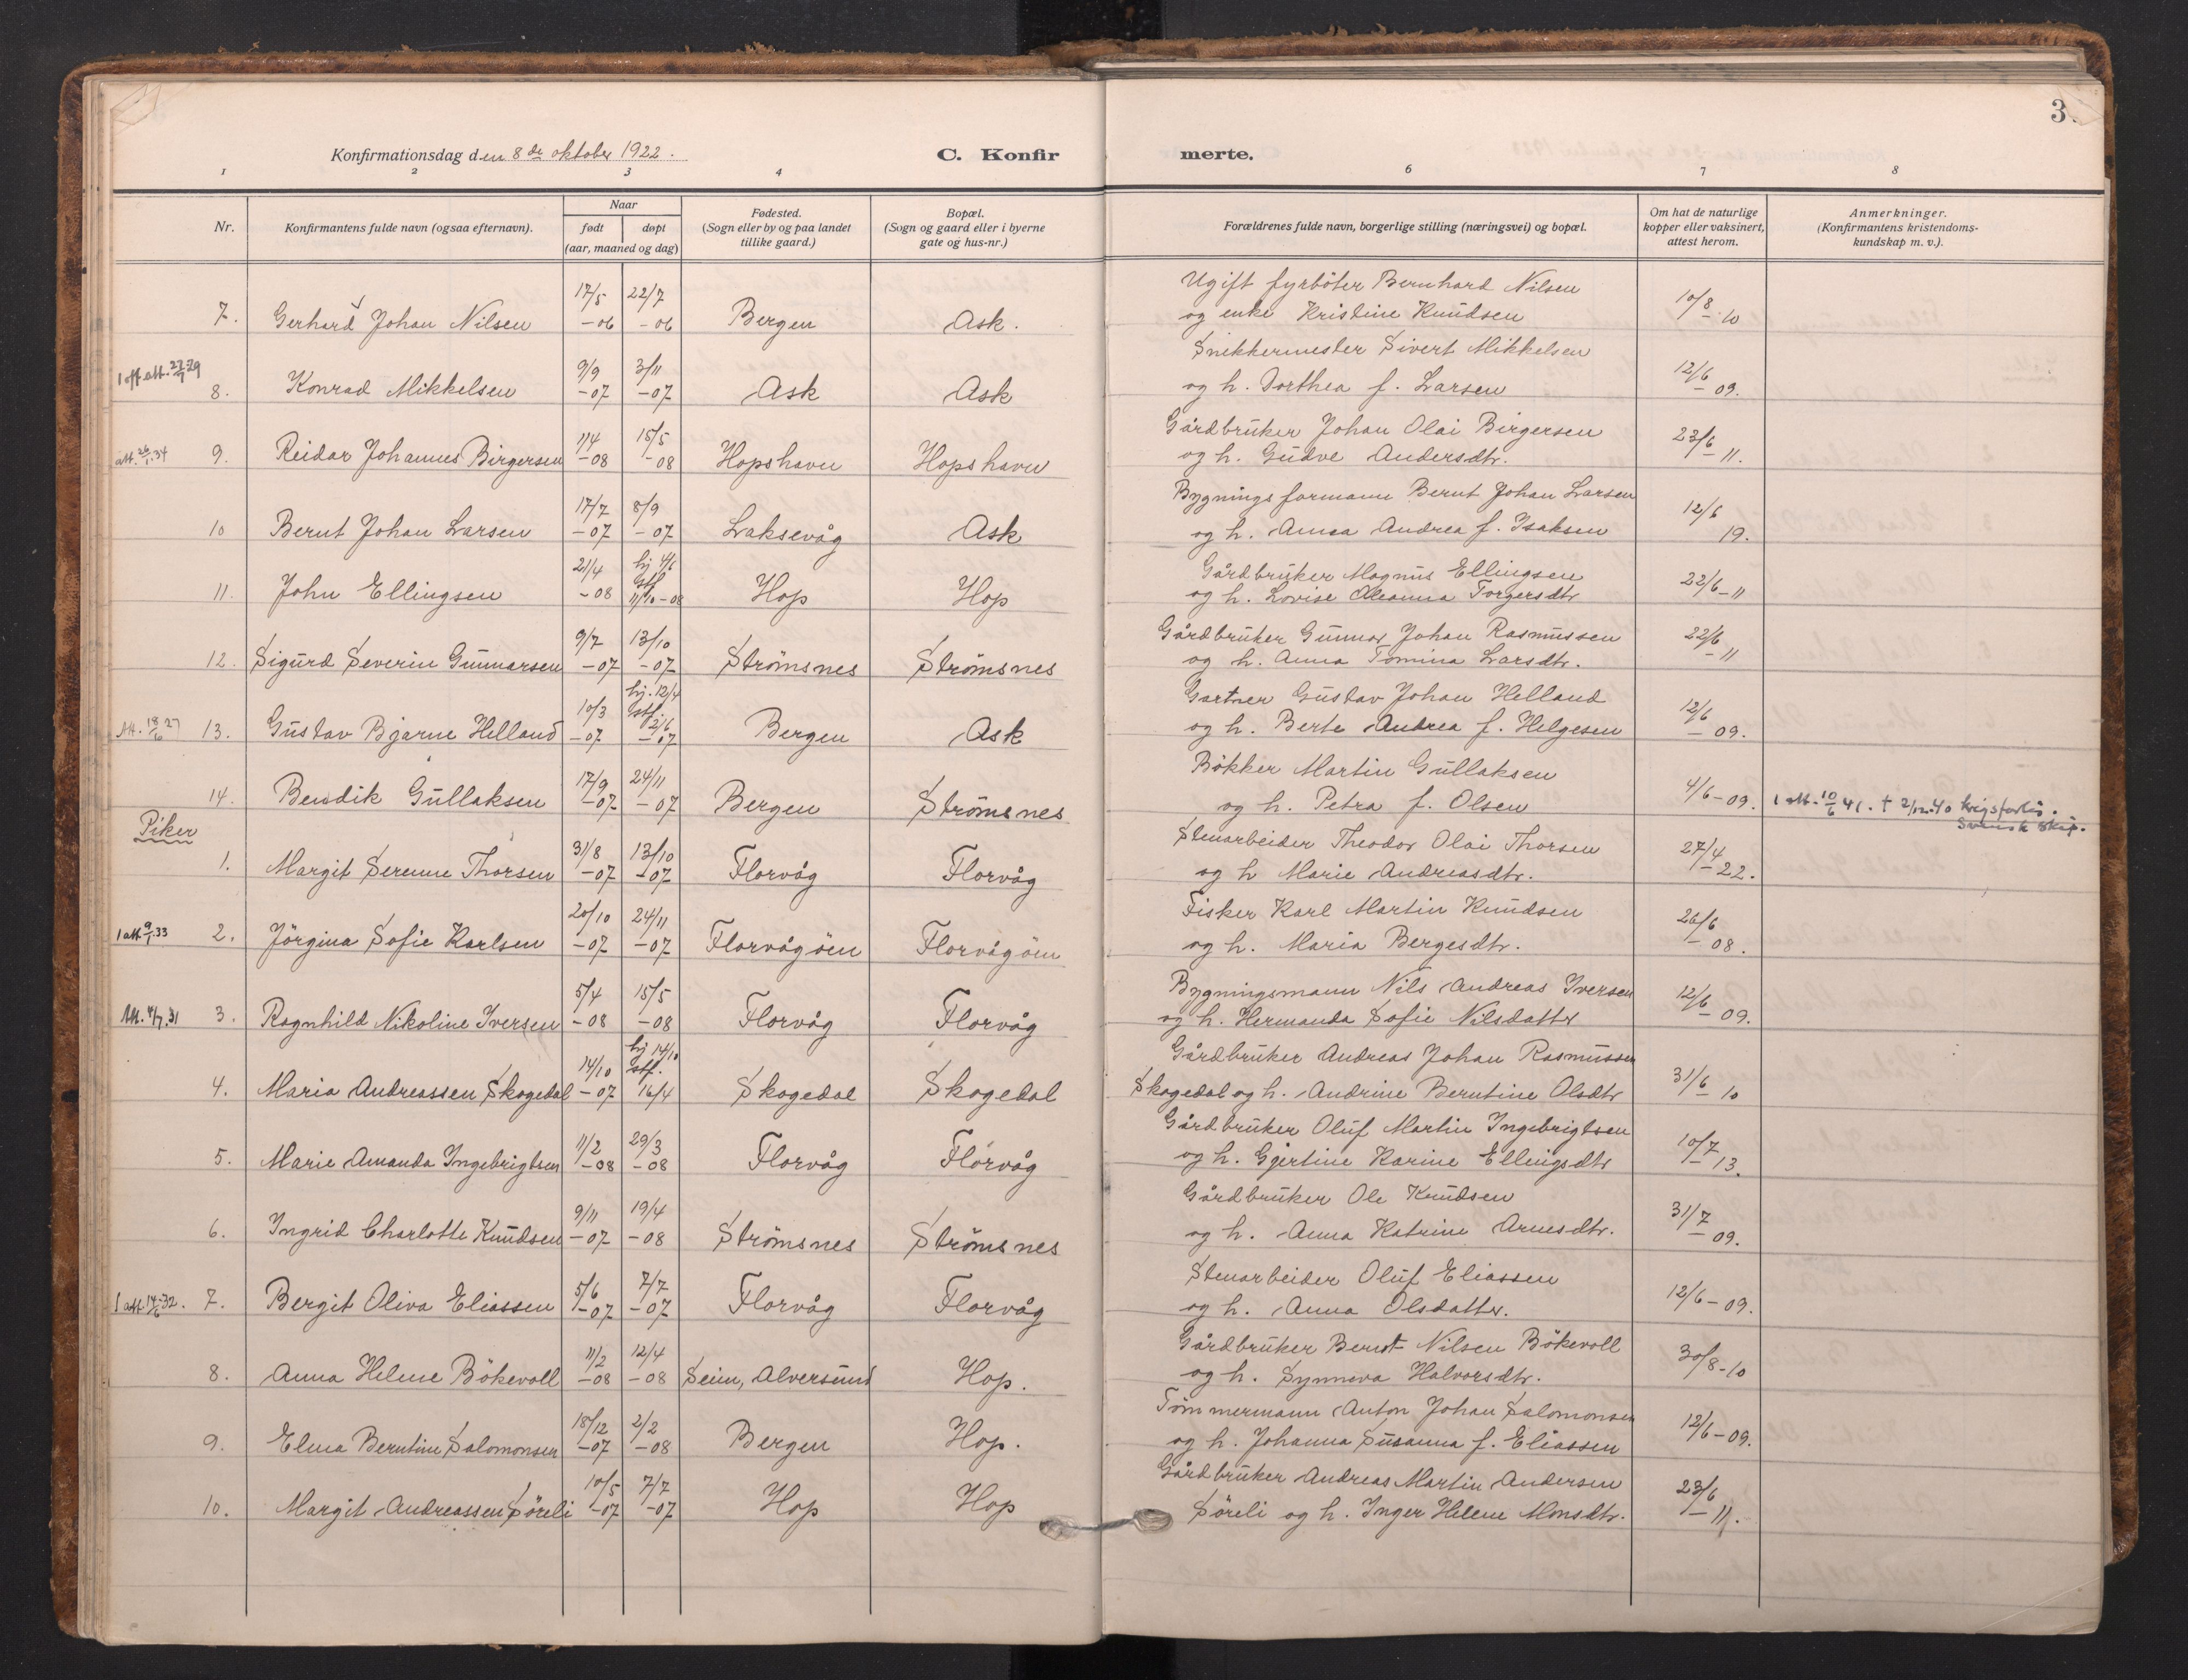 3.
Konfirmationsdag den 8de oktober 1922.
C. Konfirmerte.
1 2 3 4 6 7 8
Nr.
Konfirmantens fulde navn (ogsaa efternavn).
Naar
født døpt
(aar, maaned og dag)
Fødested.
(Sogn eller by og paa landet
tillike gaard.)
Bopæl.
(Sogn og gaard eller i byerne
gate og hus-nr.)
Forældrenes fulde navn, borgerlige stilling (næringsvei) og bopæl.
Om hat de naturlige
kopper eller vaksinert,
attest herom.
Anmerkninger.
(Konfirmantens kristendoms-
kundskap m. v.).
Ugift fyrböter Bernhard Nilsen
7. Gerhard Johan Nilsen 17/5 -06 22/7 -06 Bergen Ask. og enke Kristine Knudsen 10/8 -10
Snikkermester Sivert Mikkelsen
8. Konrad Mikkelsen 9/9 -07 3/11 -07 Ask Ask og h. Dorthea f. Larsen 12/6 -09.
Gårdbruker Johan Olai Birgersen
att. 26/1.34 9. Reidar Johannes Birgersen 11/4 -08 15/5 -08 Hopshavn Hopshavn og h. Gudve Andersdtr. 23/6 -11.
Bygningsformann Bernt Johan Larsen
10 Bernt Johan Larsen 17/7 -07 8/9 -07 Laksevåg Ask og h. Anna Andrea f. Isaksen 12/6 19.
Gårdbruker Magnus Ellingsen
11. John Ellingsen 21/4 -08 hj 4/6 stf 11/10-08 Hop Hop og h. Lovise Oleanna Torgersdtr 22/6-11
Gårdbruker Gunnar Johan Rasmussen
12. Sigurd Severin Gunnarsen 9/7 -07 13/10 -07 Strömsnes Strömsnes og h. Anna Tomina Larsdtr. 22/6 -11
Gartner Gustav Johan Helland
Att. 18/6 27 13. Gustav Bjarne Helland 10/3 -07 hj. 12/4 stf. 2/6 -07 Bergen Ask og h. Berte Andrea f. Helgesen 12/6 -09.
Bökker Martin Gullaksen
14. Bendik Gullaksen 17/9 -07 24/11 -07 Bergen Strömsnes og h. Petra f. Olsen 4/6-09. 1 att. 10/6 41. † 2/12.40 krigsforlis. Svensk skip.
Piker
Stenarbeider Theodor Olai Thorsen
1. Margit Serenne Thorsen 31/8 -07 13/10 -07 Florvåg Florvåg og h Marie Andreasdtr. 27/4 -22.
Fisker Karl Martin Knudsen
1 att 9/1.33 2. Jörgina Sofie Karlsen 20/10 -07 24/11 -07 Florvågöen Florvågöen og h. Maria Bergesdtr. 26/6 -08.
Bygningsmann Nils Andreas Iversen
Att. 4/7.31 3. Ragnhild Nikoline Iversen 5/4 -08 15/5 -08 Florvåg Florvåg og h. Hermanda Sofie Nilsdatter 12/6 -09.
Gårdbruker Andreas Johan Rasmussen
4. Maria Andreassen Skogedal 14/10 -07 hj 14/10 stf. 16/4 Skogedal Skogedal Skogedal og h. Andrine Berntine Olsdtr 31/6 -10
Gårdbruker Oluf Martin Ingebrigtsen
5. Marie Amanda Ingebrigtsen 11/2 -08 29/3 -08 Florvåg Florvåg og h. Gjertine Karine Ellingsdtr 10/7 -13.
Gårdbruker Ole Knudsen
6. Ingrid Charlotte Knudsen 9/11 -07 19/4 -08 Strömsnes Strömsnes og h. Anna Katrine Arnesdtr. 31/7 -09.
Stenarbeider Oluf Eliassen
1 att 14/6-32. 7. Bergit Oliva Eliassen 5/6 -07 7/7 -07 Florvåg Florvåg og h. Anna Olsdatter. 12/6-09.
Gårdbruker Bernt Nilsen Bökevoll
8. Anna Helene Bökevoll 11/2 -08 12/4 -08 Seim, Alversund Hop. og h. Synneva Halvorsdtr. 30/8-10
Tömmermann Anton Johan Salomonsen
9. Elma Berntine Salomonsen 18/12 -07 2/2 -08 Bergen Hop. og h. Johanna Susanna f. Eliassen 12/6-09.
Gårdbruker Andreas Martin Andersen
10. Margit Andreassen Söreli 10/5 -07 7/7 -07 Hop Hop Söreli og h. Inger Helene Monsdtr. 23/6 -11.